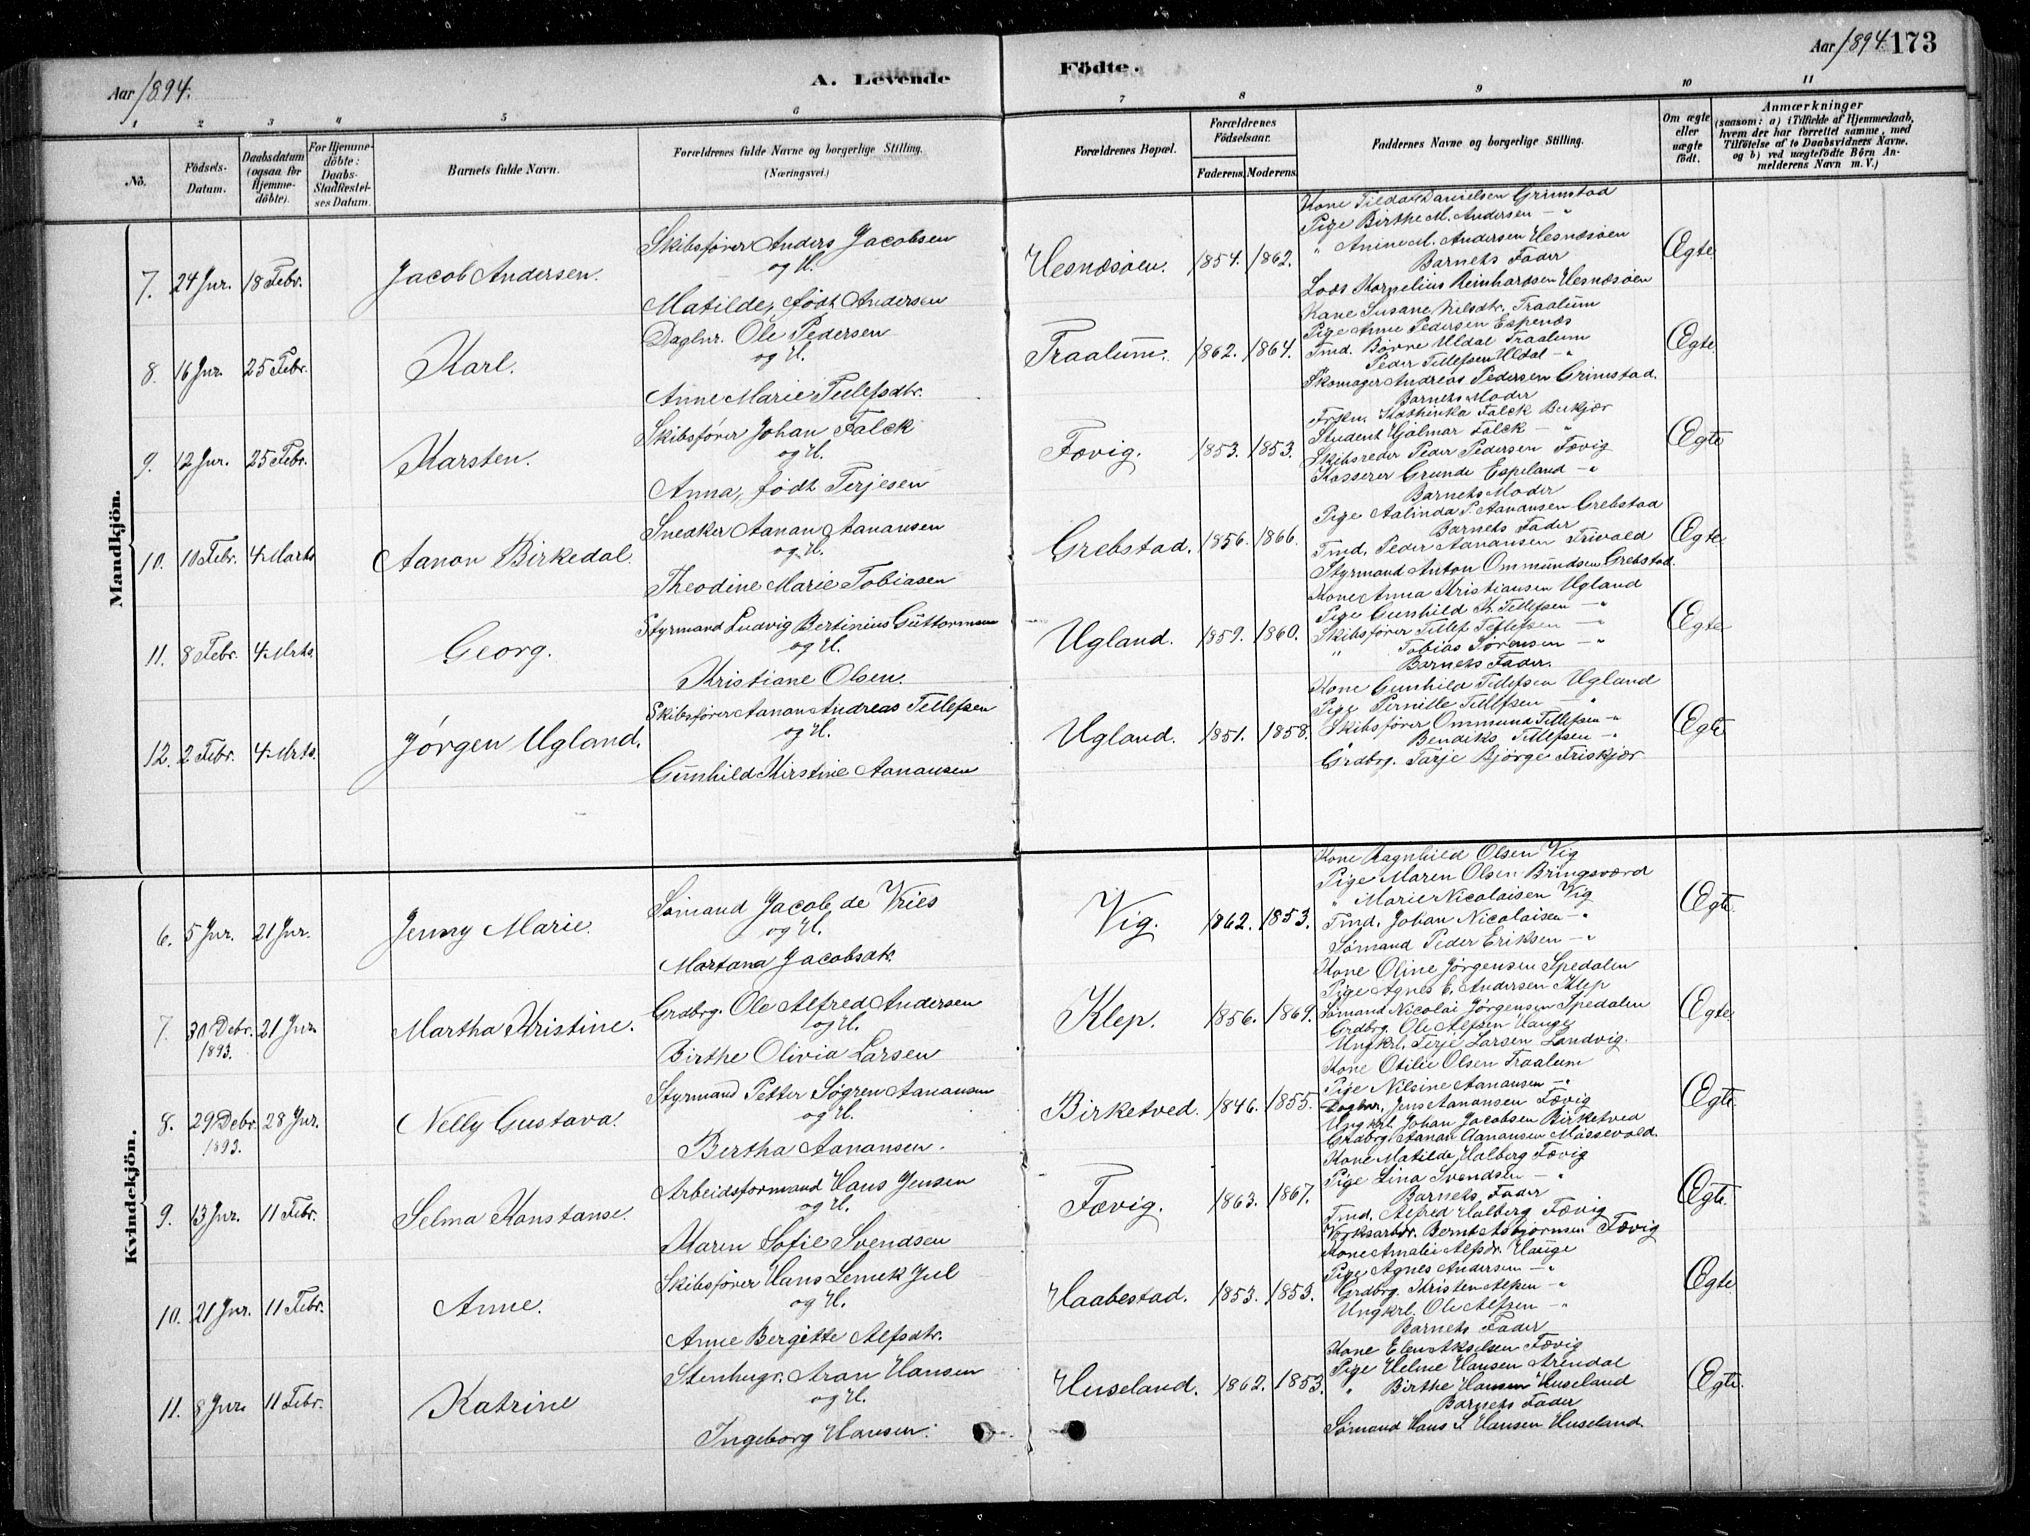 Aar 1894.
A. Levende
Födte.
Aar 1894. 173
1 2 3 4 5 6 7 8 9 10 11
No.
Födsels-Datum.
Daabsdatum (ogsaa for Hjemme-döbte).
For Hjemme-döbte: Daabs-Stadfæstel-ses Datum.
Barnets fulde Navn.
Forældrenes fulde Navne og borgerlige Stilling. (Næringsvei.)
Forældrenes Bopæl.
Forældrenes Födselsaar.
Faderens. Moderens.
Faddernes Navne og borgerlige Stilling.
Om ægte eller uægte födt.
Anmærkninger (saasom: a) i Tilfælde af Hjemmedaab, hvem der har forrettet samme, med Tilföielse af to Daabsvidners Navne. og b) ved uægtefödte Börn An-melderens Navn m. V.)
Mandkjön.
7. 24 Jnr. 18 Febr. Jacob Andersen.
Skibsfører Anders Jacobsen
og H.
Matilde, født Andersen
Hesnæsøen. 1854. 1862.
Kone Tilda Danielsen Grimstad
Pige Birthe M. Andersen — "
" Anine M. Andersen Hesnæsøen
Barnets Fader
Lods Kornelius Reinhardsen Hesnæsøen
Ægte
8. 16 Jnr. 25 Febr. Karl.
Daglnr. Ole Pedersen
og H.
Anne Marie Tellefsdtr.
Traalum. 1862. 1864.
Kone Susane Nilsdtr. Traalum
Pige Anne Pedersen Espenæs
Tmd. Børre Uldal Traalum
Peder Tellefsen Uldal — "
Skomager Andreas Pedersen Grimstad.
Ægte
9. 12 Jnr. 25 Febr. Karsten.
Skibsfører Johan Falck
og H.
Anna, født Terjesen
Fævig. 1853. 1853.
Barnets Moder
Frøken Kathinka Falck Berkjær
Student Hjalmar Falck — "
Skibsreder Peder Pedersen Fævig
Kasserer Grunde Espeland — "
Ægte
10. 10 Febr. 4 Marts Aanon Birkedal.
Snedker Aanon Aanonsen
og H.
Theodine Marie Tobiasen
Grebstad. 1856. 1866.
Barnets Moder
Pige Aalinda P. Aanonsen Grebstad
Barnets Fader
Tmd. Peder Aanonsen Trivold
Styrmand Anton Ommundsen Grebstad.
Ægte
11. 8 Febr. 4 Mrts. Georg.
Styrmand Ludvig Bertinius Guttormsen
og H.
Kristiane Olsen.
Ugland. 1859. 1860.
Kone Anna Kristiansen Ugland
Pige Gunhild K. Tellefsen — "
Skibsfører Tellef Tellefsen — "
" Tobias Sørensen — "
Barnets Fader.
Ægte
12. 2 Febr. 4 Mrts. Jørgen Ugland.
Skibsfører Aanon Andreas Tellefsen
og H.
Gunhild Kirstine Aanonsen
Ugland. 1851. 1858.
Kone Gunhild Tellefsen Ugland
Pige Pernille Tellefsen — "
Skibsfører Ommund Tellefsen — "
Bendiks Tellefsen — "
Grdbrg. Tarje Bjørge Friskjær
Ægte
Kvindekjön.
6. 5 Jnr. 21 Jnr. Jenny Marie.
Sømand Jacob de Vries
og H.
Martana Jacobsdtr.
Vig. 1862. 1853.
Kone Ragnhild Olsen Vig
Pige Maren Olsen Bringsværd
" Marie Nicolaisen Vig
Tmd. Johan Nicolaisen — "
Sømand Peder Eriksen — "
Ægte
7. 30 Debr. 1893. 21 Jnr. Martha Kristine.
Grdbrg. Ole Alfred Andersen
og H.
Birthe Olivia Larsen
Klep. 1856. 1869.
Kone Oline Jørgensen Spedalen
Pige Agnes E. Andersen Klep
Sømand Nicolai Jørgensen Spedalen
Grdbrg. Ole Alfsen Hauge
Ungkrl. Terje Larsen Landvig.
Ægte
8. 29 Debr. 1893. 28 Jnr. Nelly Gustava.
Styrmand Petter Søgren Aanonsen
og H.
Bertha Aanonsen.
Birketved. 1846. 1855.
Kone Otilie Olsen Traalum
Pige Nilsine Aanonsen — "
Daglnr. Jens Aanonsen Fævig
Ungkrl. Johan Jacobsen Birketved
Grdbrg. Aanon Aanonsen Mossevold.
Ægte
9. 13 Jnr. 11 Febr. Selma Konstanse.
Arbeidsformand Hans Jensen
og H.
Maren Sofie Svendsen
Fævig. 1863. 1867.
Kone Matilde Halberg Fævig
Pige Lina Svendsen — "
Barnets Fader
Tmd. Alfred Halberg Fævig
Værksarbdr. Bernt Asbjørnsen Fævig
Ægte
10. 21 Jnr. 11 Febr. Anne.
Skibsfører Hans Lemek Jul
og H.
Anne Bergitte Alfsdtr.
Haabestad. 1853. 1853.
Kone Amalie Alfsdr. Hauge
Pige Agnes Andersen — "
Grdbrg. Kristen Alfsen — "
Ungkrl. Ole Alfsen — "
Barnets Fader
Ægte
11. 8 Jnr. 11 Febr. Katrine
Stenhugr. Aron Hansen
og H.
Ingeborg Hansen.
Huseland. 1862. 1853.
Kone Elen Akselsen Fævig
Pige Helene Hansen Arendal
" Birthe Hansen Huseland
Barnets Fader
Sømand Hans S. Hansen Huseland.
Ægte.